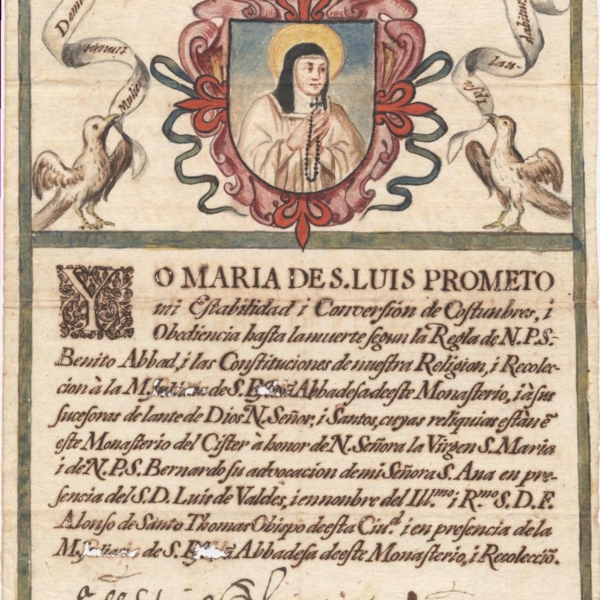 Domi
timent
Mulier
ipsa
lau-
dabitur
YO MARIA DE S. LUIS PROMETO
mi Estabilidad i Conversión de Costunbres, i
Obediencia hasta la muerte segun la Regla de N. P. S.
Benito Abbad, i las Constituciones de nuestra Religion, i Recolec-
cion à la M. de S. Abbadesa deeste Monasterio, i à sus
sucesoras de lante de Dios N. Señor, i Santos, cuyas reliquias estàn ẽ
este Monasterio del Cister à honor de N. Señora la Virgen S. Maria
i de N. P. S. Bernardo su advocacion de mi Señora S. Ana en pre-
sencia del S. D. Luis de Valdes, i en nonbre del Ill.mo i R.mo S. D. F.
Alonso de Santo Thomas Obispo deesta Ciu.d i en presencia de la
M. de S. Abbadesa deeste Monasterio, i Resolecciõ.